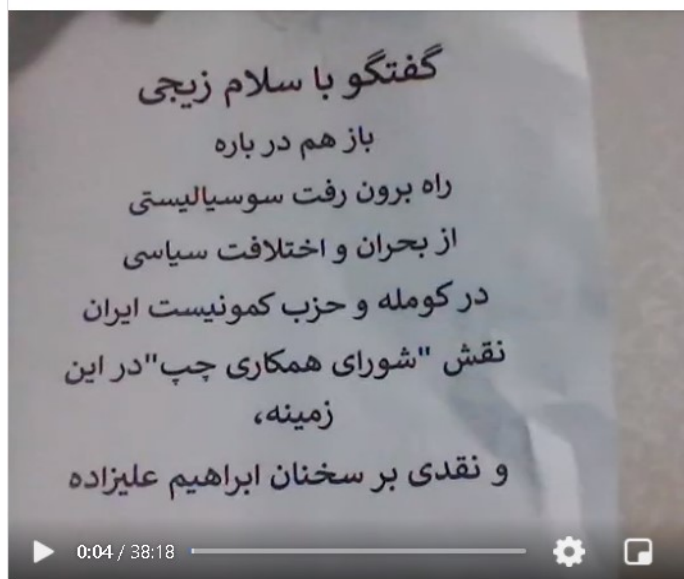 گفتگو با سلام زیجی
باز هم در باره
راه برون رفت سوسیالیستی
از بحران و اختلافت سیاسی
در کومله و حزب کمونیست ایران
نقش "شورای همکاری چپ"در این
زمینه،
و نقدی بر سخنان ابراهیم علیزاده
0:04 / 38:18